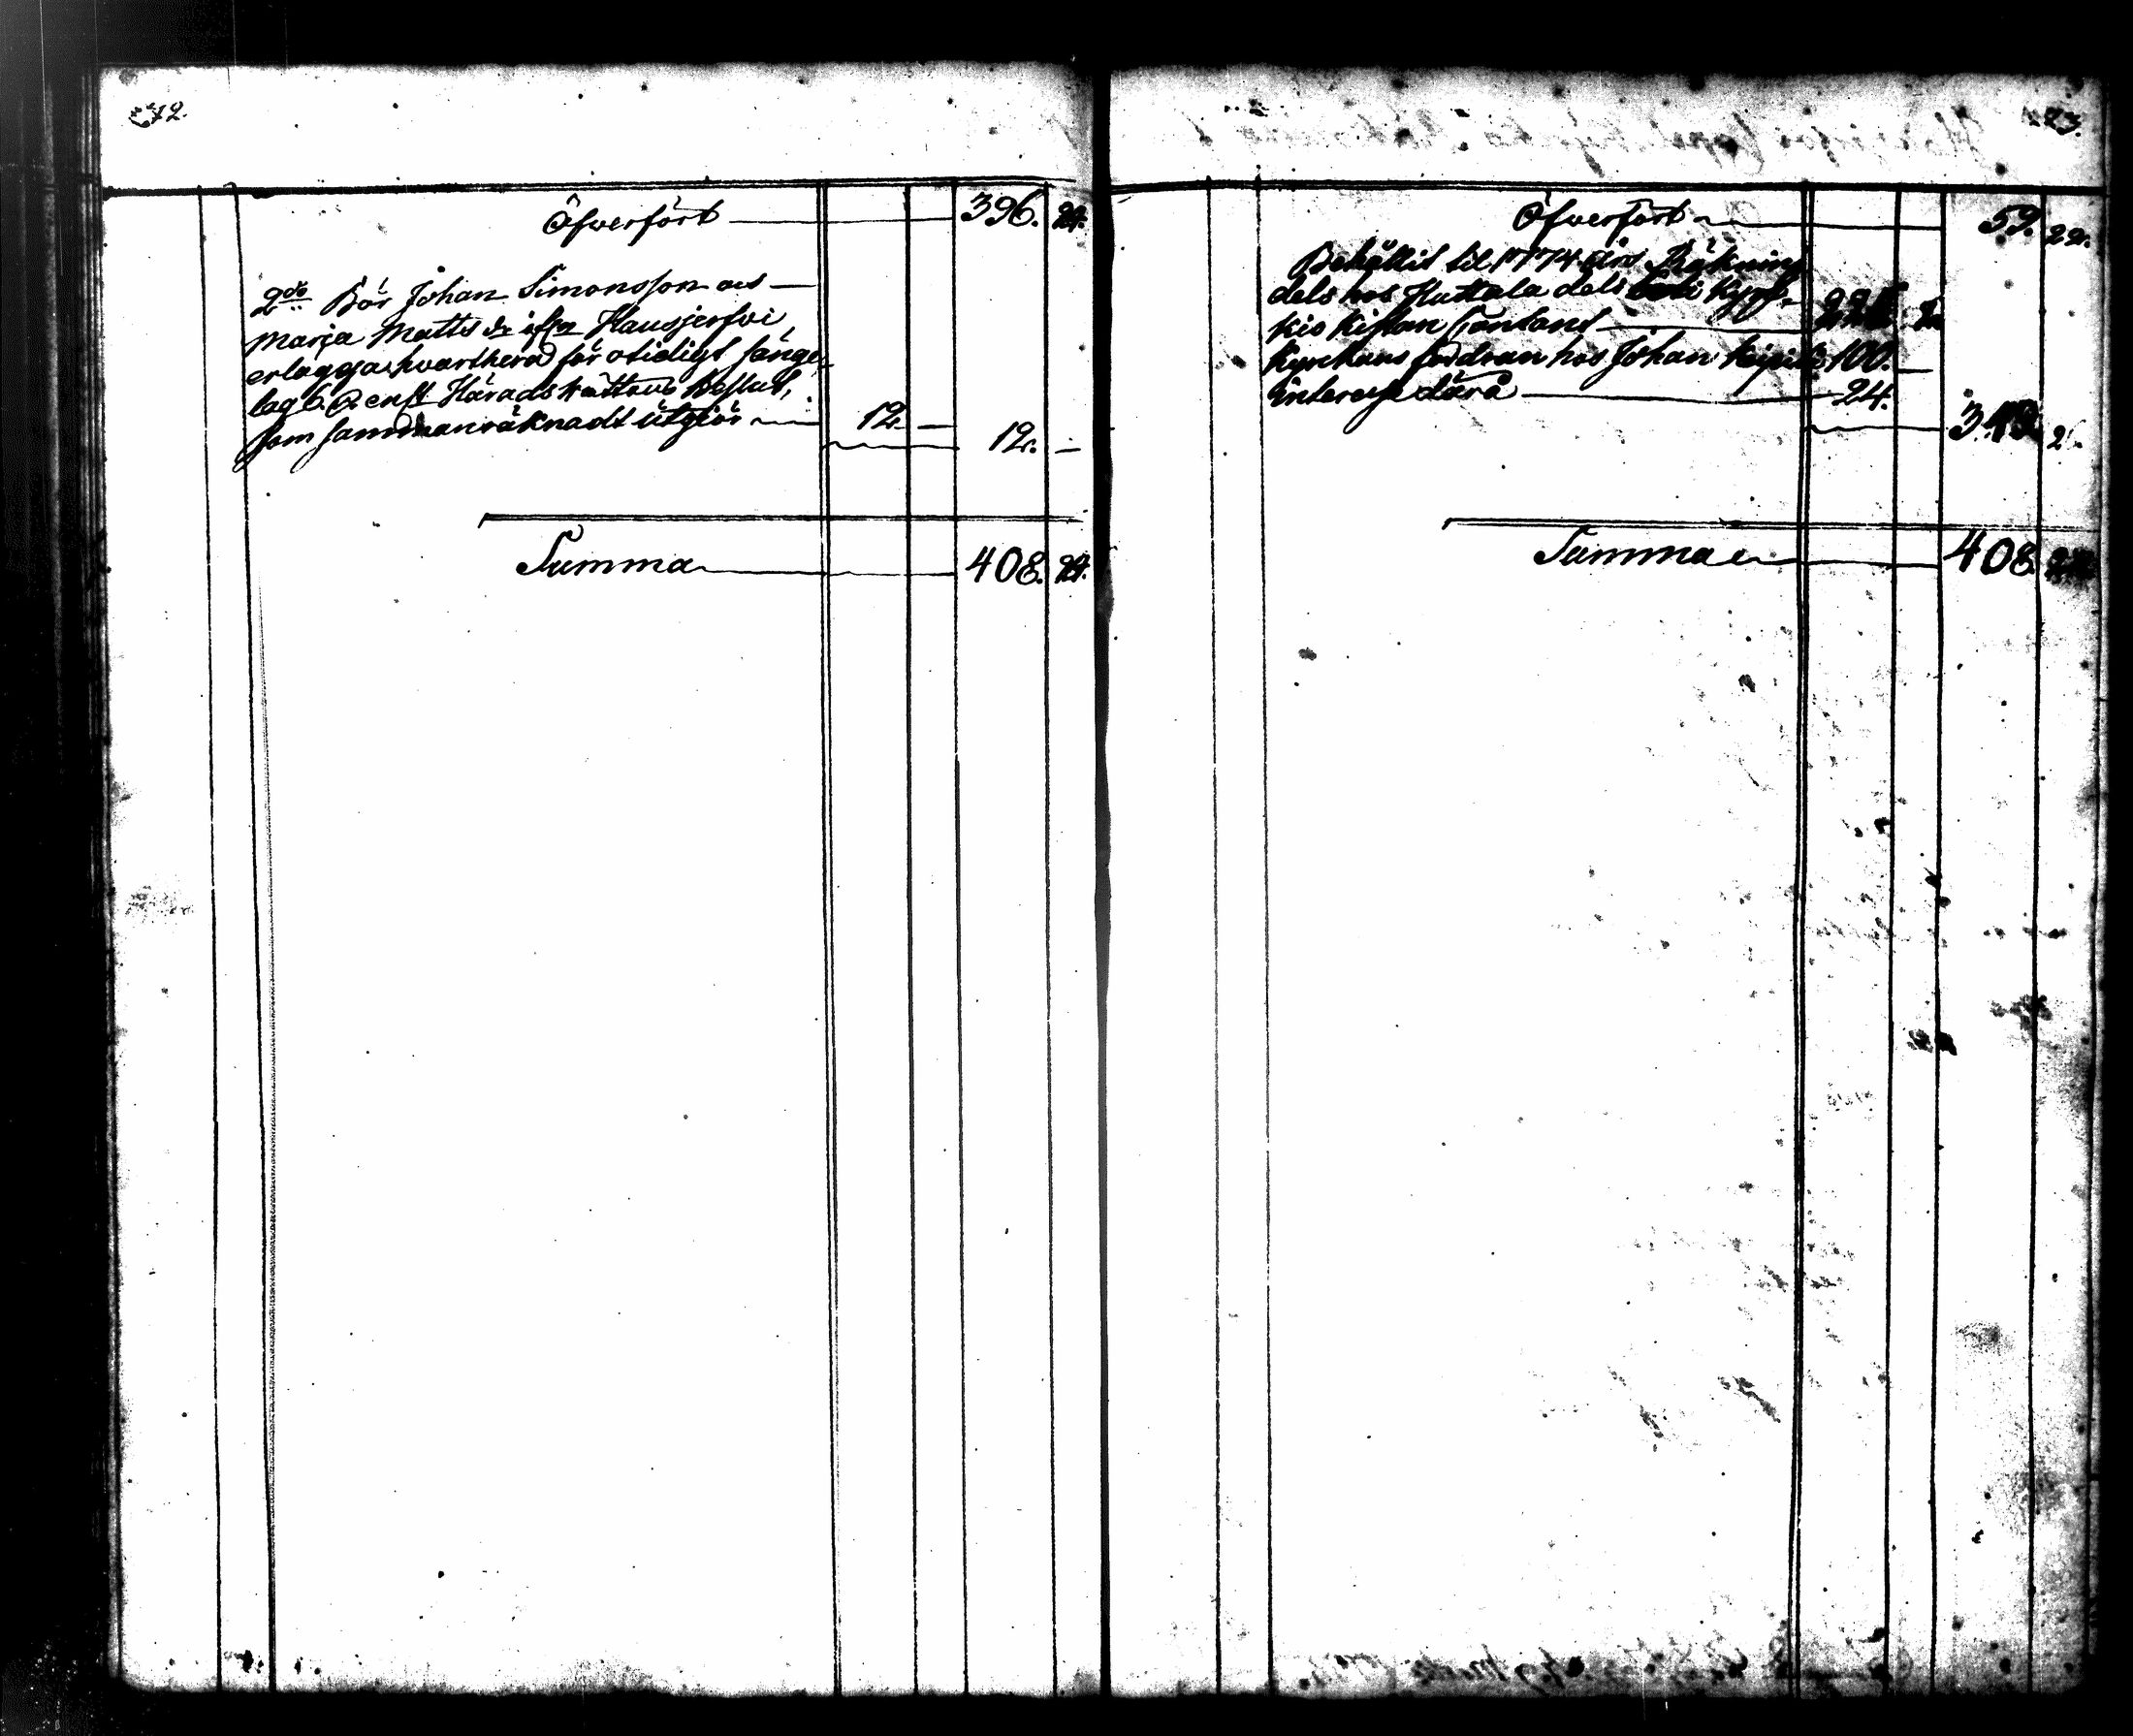 272.
Öfwerfört 396. 24.
2do Bör Johan Simonsson och
Marja Matts dr ifrån Hausjerfvi
erlägga hvarthera för otidigt sänge
lag 6. D. enl. Härads Rättens Beslut,
som sammanräknadt utgiör 12. —
12. —
Summa 408. 24.
23.
Öfwerfört 59. 22.
Behållit til 1774 års Räkning
dels hos Huttala dels i Kyr-
kio Kistan Contant
Kyrckans fordran hos Johan 100. —
Interesse därå 24.
Summa 408.